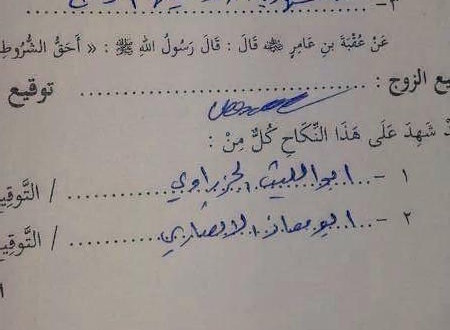 ٣ -
عَنْ عُقْبَةَ بنِ عَامِرٍ ﷺ قَالَ : قَالَ رَسُولُ اللهِ ﷺ : « أَحَقُّ الشُّرُوطِ
يع الزوج : ........................ توقيع
دْ شَهِدَ عَلَى هَذَا النِّكَاحِ كُلٌّ مِنْ :
١ - ابو الليث الجزراوي ........ / التَّوقِيعُ
٢ - ابو معاذ الانصاري ........ / التَّوقِيعُ